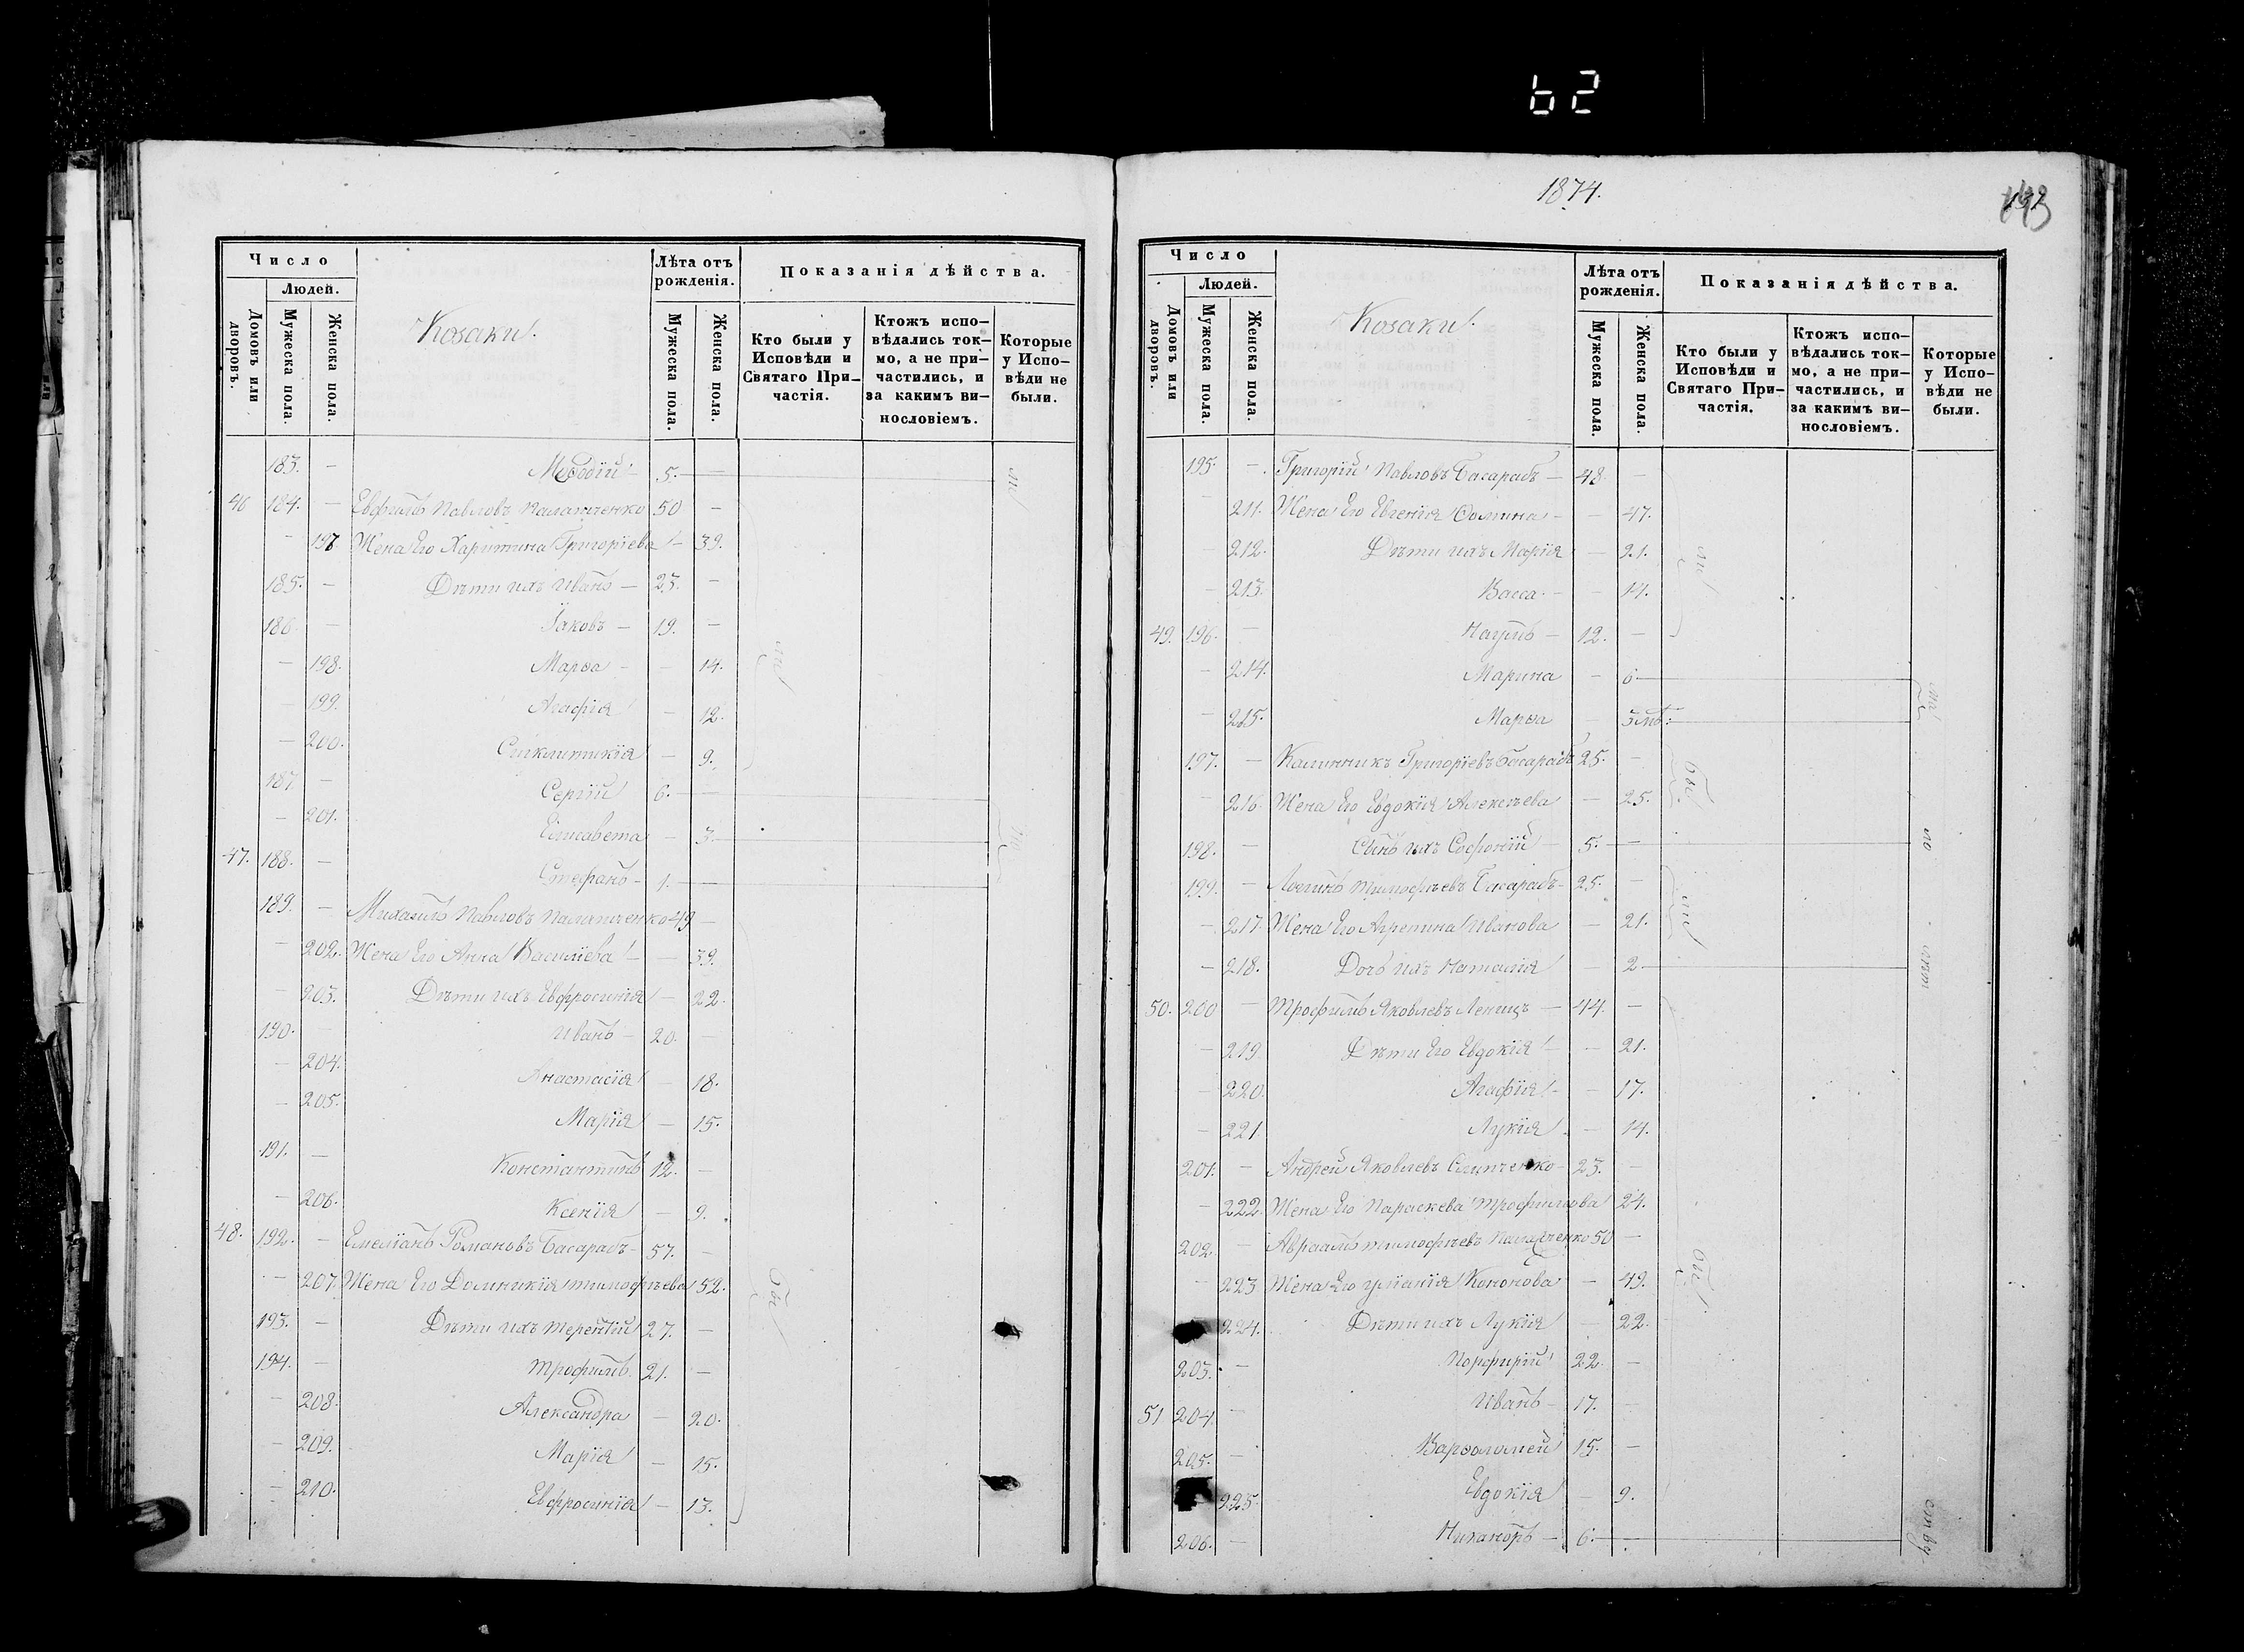 62
1874.
Число
Людей.
Домовъ или дворовъ.
Мужеска пола.
Женска пола.
Козаки.
Лѣта отъ рожденія.
Мужеска пола.
Женска пола.
Показанія дѣйства.
Кто были у Исповѣди и Святаго При-частія.
Ктожъ испо-вѣдались ток-мо, а не при-частились, и за какимъ ви-нословіемъ.
Которые у Испо-вѣди не были.
183. — Меѳодій 5. —
46 184. — Евфимъ Павловъ 50 —
— 197. Жена Его Харитина Григоріева — 39.
185. — Дѣти ихъ Иванъ — 23. —
186. — Іаковъ — 19. —
— 198. Марѳа — — 14.
— 199. Агафія — 12.
— 200. Сигклитикія — 9.
187 — Сергій 6. —
— 201. Елисавета — 3.
47. 188. — Стефанъ — 1. —
189. — Михаилъ Павловъ 49 —
— 202. Жена Его Анна Василіева — — 39.
— 203. Дѣти ихъ Евфросинія — 22.
190. — Иванъ — 20. —
— 204. Анастасія — 18.
— 205. Марія — 15.
191. — Константинъ 12. —
— 206. Ксенія — 9.
48. 192. — Емеліанъ Романовъ Басарабъ — 57. —
— 207. Жена Его Домникія Тимофѣева 52.
193. — Дѣти ихъ Терентій 27. —
194. — Трофимъ 21. —
— 208. Александра — 20.
— 209. Марія — 15.
— 210. Евфросинія — 13.
Число
Людей.
Домовъ или дворовъ.
Мужеска пола.
Женска пола.
Козаки.
Лѣта отъ рожденія.
Мужеска пола.
Женска пола.
Показанія дѣйства.
Кто были у Исповѣди и Святаго При-частія.
Ктожъ испо-вѣдались ток-мо, а не при-частились, и за какимъ ви-нословіемъ.
Которые у Испо-вѣди не были.
195. — Григорій Павловъ Басарабъ — 48 —
— 211. Жена Его Евгенія Фомина — — 47.
— 212. Дѣти ихъ Марія — 21.
— 213. Васса — — 14.
49. 196. — Наумъ — 12. —
— 214. Марина — 6
— 215. Марѳа — 3 мѣ:
197. — Калинникъ Григоріевъ Басарабъ 25. —
— 216. Жена Его Евдокія Алексѣева — 25.
198. — Сынъ ихъ Софоній — 5. —
199. — Логинъ Тимофѣевъ Басарабъ — 25. —
— 217. Жена Его Агрепина Иванова — 21.
— 218. Дочь ихъ Наталія — 2
50. 200 — Трофимъ Яковлевъ — 44. —
— 219. Дѣти Его Евдокія — — 21.
— 220. Агафія — — 17.
— 221. Лукія — 14.
201. — Андрей Яковлевъ 23. —
— 222. Жена Его Параскева Трофимова 24.
202. — Авраамъ Тимофѣевъ 50 —
— 223. Жена Его Уліанія Кононова — 49.
224. Дѣти ихъ Лукія — 22.
203. — Порфирій 22. —
51 204. — Иванъ — 17. —
205. — Варѳоломей 15. —
225. Евдокія — 9.
206. — Никаноръ — 6. —